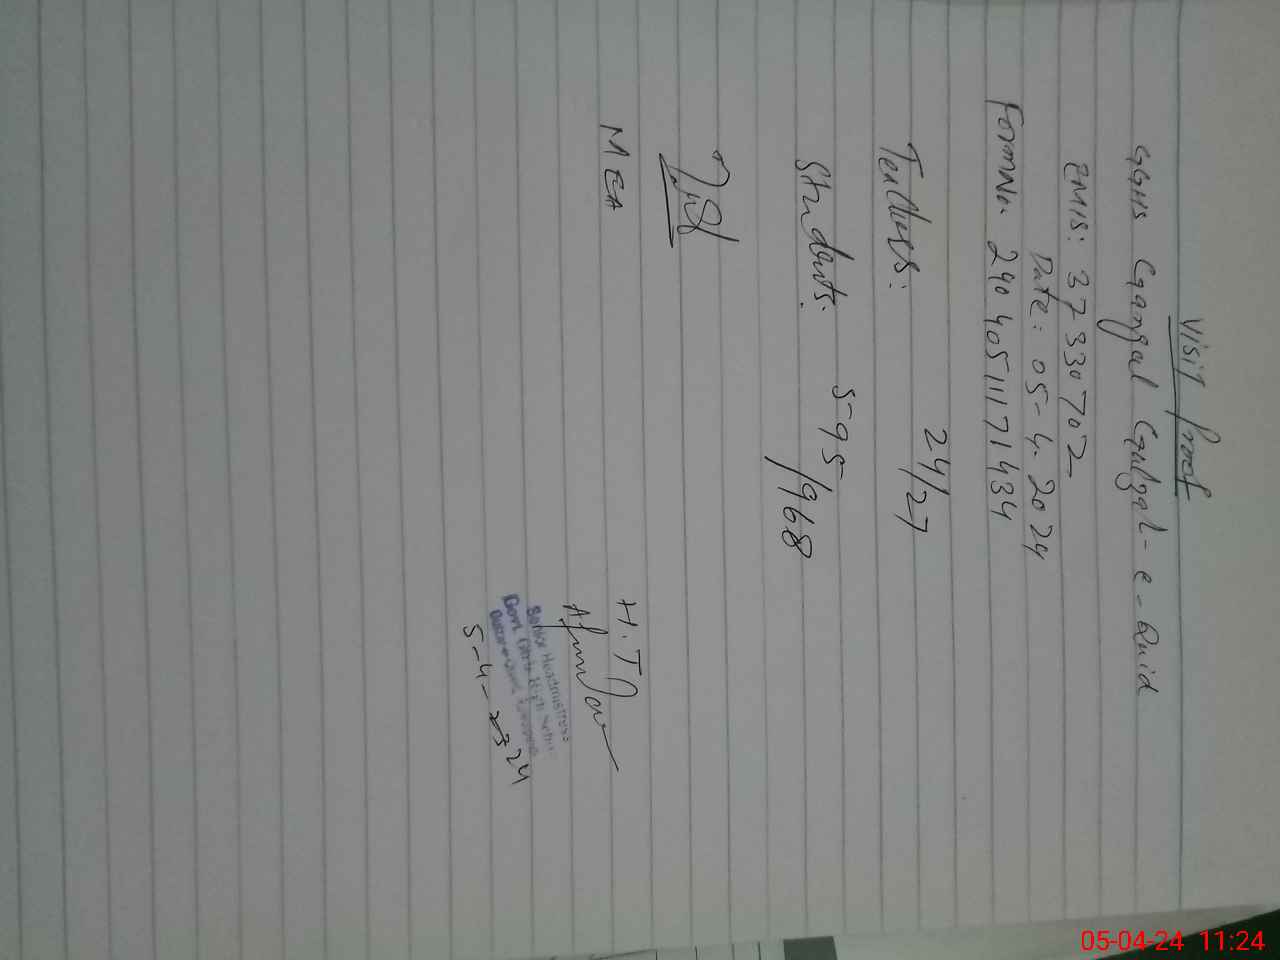 Visit Proof
GGHS Gangal Gulzal-e-Quid
EMIS: 37330702
Date: 05-4-2024
Form No. 24040511171434
Teachers: 24/27
Students: 595/968
MEA
H.T
Senior Headmistress
Govt. Girls High
5-4-24
05-04-24 11:24